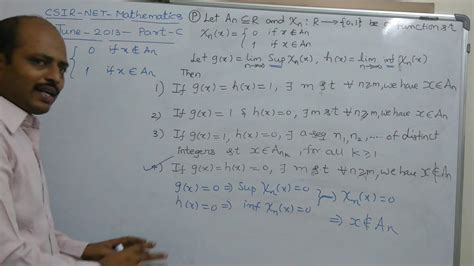 CSIR-NET-Mathematics
June-2013- Part-C
{ 0 if x∉An
1 if x∈An
(P) Let An ⊆ R and χn : R → {0,1} be a function st
χn(x) = { 0 if x∉An
1 if x∈An
Let g(x) = lim Sup χn(x), h(x) = lim inf χn(x)
n→∞ n→∞
Then
1) If g(x) = h(x) = 1, ∃ m st ∀ n≥m, we have x∈An
2) If g(x) = 1 & h(x) = 0, ∃ m st ∀ n≥m, we have x∈An
3) If g(x) = 1, h(x) = 0, ∃ a seq n1, n2, ... of distinct
Integers st x∈Ank, for all k≥1
4) If g(x) = h(x) = 0, ∃ m st ∀ n≥m, we have x∉An
g(x) = 0 ⇒ Sup χn(x) = 0 } ⇒ χn(x) = 0
h(x) = 0 ⇒ inf χn(x) = 0
⇒ x∉An